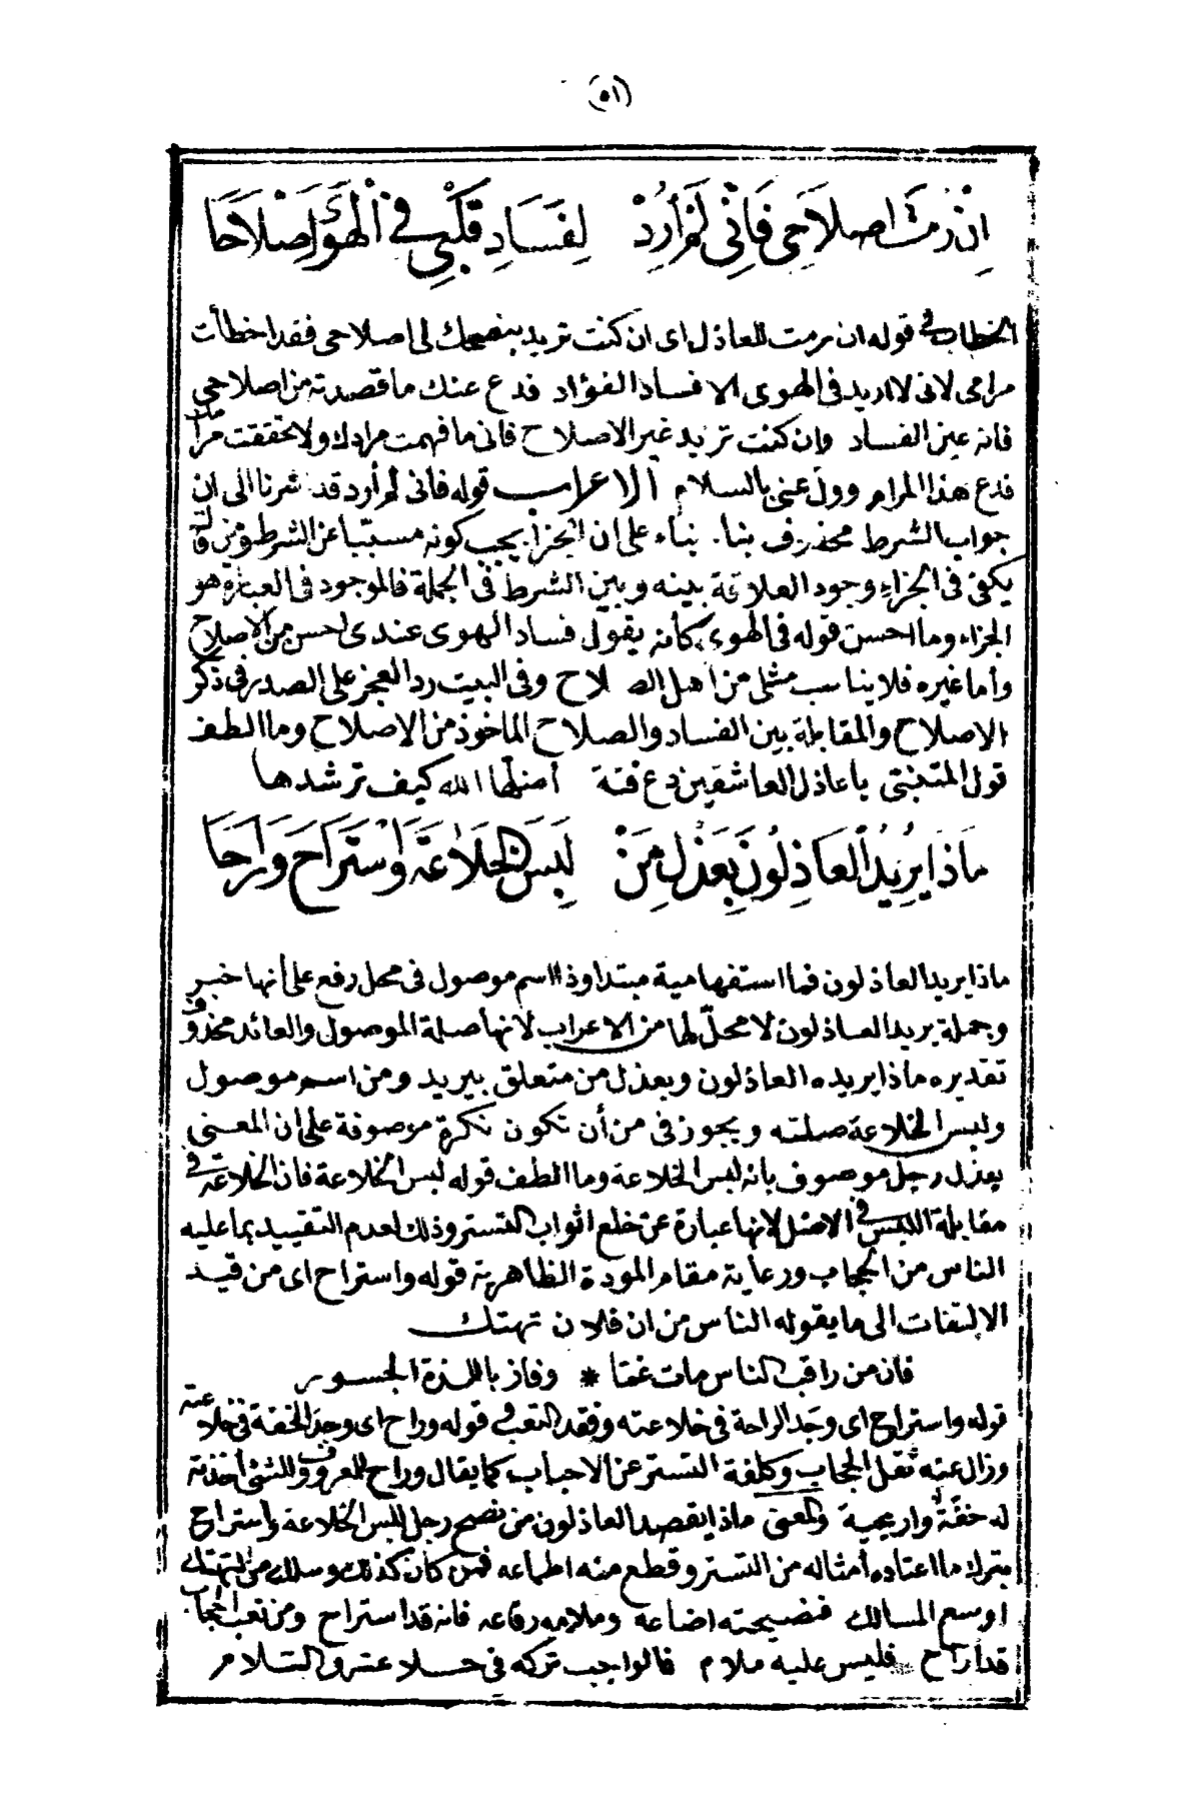 (٥١)
اِنْ رُمْتَ اصلاَحِى فَاِنّى لَمْ أُرِدْ لِفَسَادِ قَلْبِى فى الْهَوَى اِصْلاَحَا
الخطاب فى قوله ان رمت للعاذل اى ان كنت تريد بنصحك لى اصلاحى فقد اخطأت
مرامى لانى لا اريد فى الهوى الا فساد الفؤاد فدع عنك ما قصدته من اصلاحى
فانه عين الفساد وان كنت تريد غير الاصلاح فانى ما فهمت مرادك ولا تحققت مرامك
فدع هذا المرام وول عنى بالسلام الاعراب قوله فانى لم أرد قد اشرنا الى ان
جواب الشرط محذوف بناء على ان الجزا يجب كونه مسببا عن الشرط ومن
يكفى فى الجزاء وجود العلاقة بينه وبين الشرط فى الجملة فالموجود فى العبارة هو
الجزاء وما احسن قوله فى الهوى كأنه يقول فساد الهوى عندى احسن من الاصلاح
وأما غيره فلا يناسب مثلى من أهل الصلاح وفى البيت رد العجز على الصدر فى ذكر
الاصلاح والمقابلة بين الفساد والصلاح الماخوذ من الاصلاح وما الطف
قول المتنبى يا عاذل العاشقين دع فئة أضلها الله كيف ترشدها
مَاذَا يُرِيدُ الْعَاذِلُونَ بِعَذْلِ مَنْ لَبِسَ الْخَلاَعَةَ وَاسْتَرَاحَ وَرَاحَا
ماذا يريد العاذلون فما استفهامية مبتدا وذا اسم موصول فى محل رفع على أنها خبر
وجملة يريد العاذلون لا محلّ لها من الاعراب لانها صلة الموصول والعائد محذوف
تقديره ماذا يريده العاذلون وبعذل من متعلق بيريد ومن اسم موصول
ولبس الخلاعة صلته ويجوز فى من أن تكون نكرة موصوفة على ان المعنى
بعذل رجل موصوف بانه لبس الخلاعة وما الطف قوله لبس الخلاعة فان الخلاعة فى
مقابلة اللبس فى الاصل لانها عبارة عن خلع اثواب التستر وذلك لعدم التقييد بما عليه
الناس من الحجاب ورعاية مقام المودة الظاهرية قوله واستراح اى من قيد
الالتفات الى ما يقوله الناس من ان فلان تهتك
فان من راقب الناس مات غما * وفاز باللذة الجسور
قوله واستراح اى وجد الراحة فى خلاعته وفقد التعب فى قوله وراح اى وجد الخفة فى خلاعته
وزال عنه ثقل الحجاب وكلفة التستر عن الاحباب كما يقال وراح للمعروف وللشئ أخذته
له خفّة واريحية والمعنى ماذا يقصد العاذلون من نصح رجل لبس الخلاعة واستراح
بترك ما اعتاده أمثاله من التستر وقطع منه اطماعه فمن كان كذلك وسلك من التهتك
اوسع المسالك فنصيحته اضاعة وملامه رقاعه فانه قد استراح ومن تعب الحجاب
قد أراح فليس عليه ملام فالواجب تركه فى خلاعته والسلام